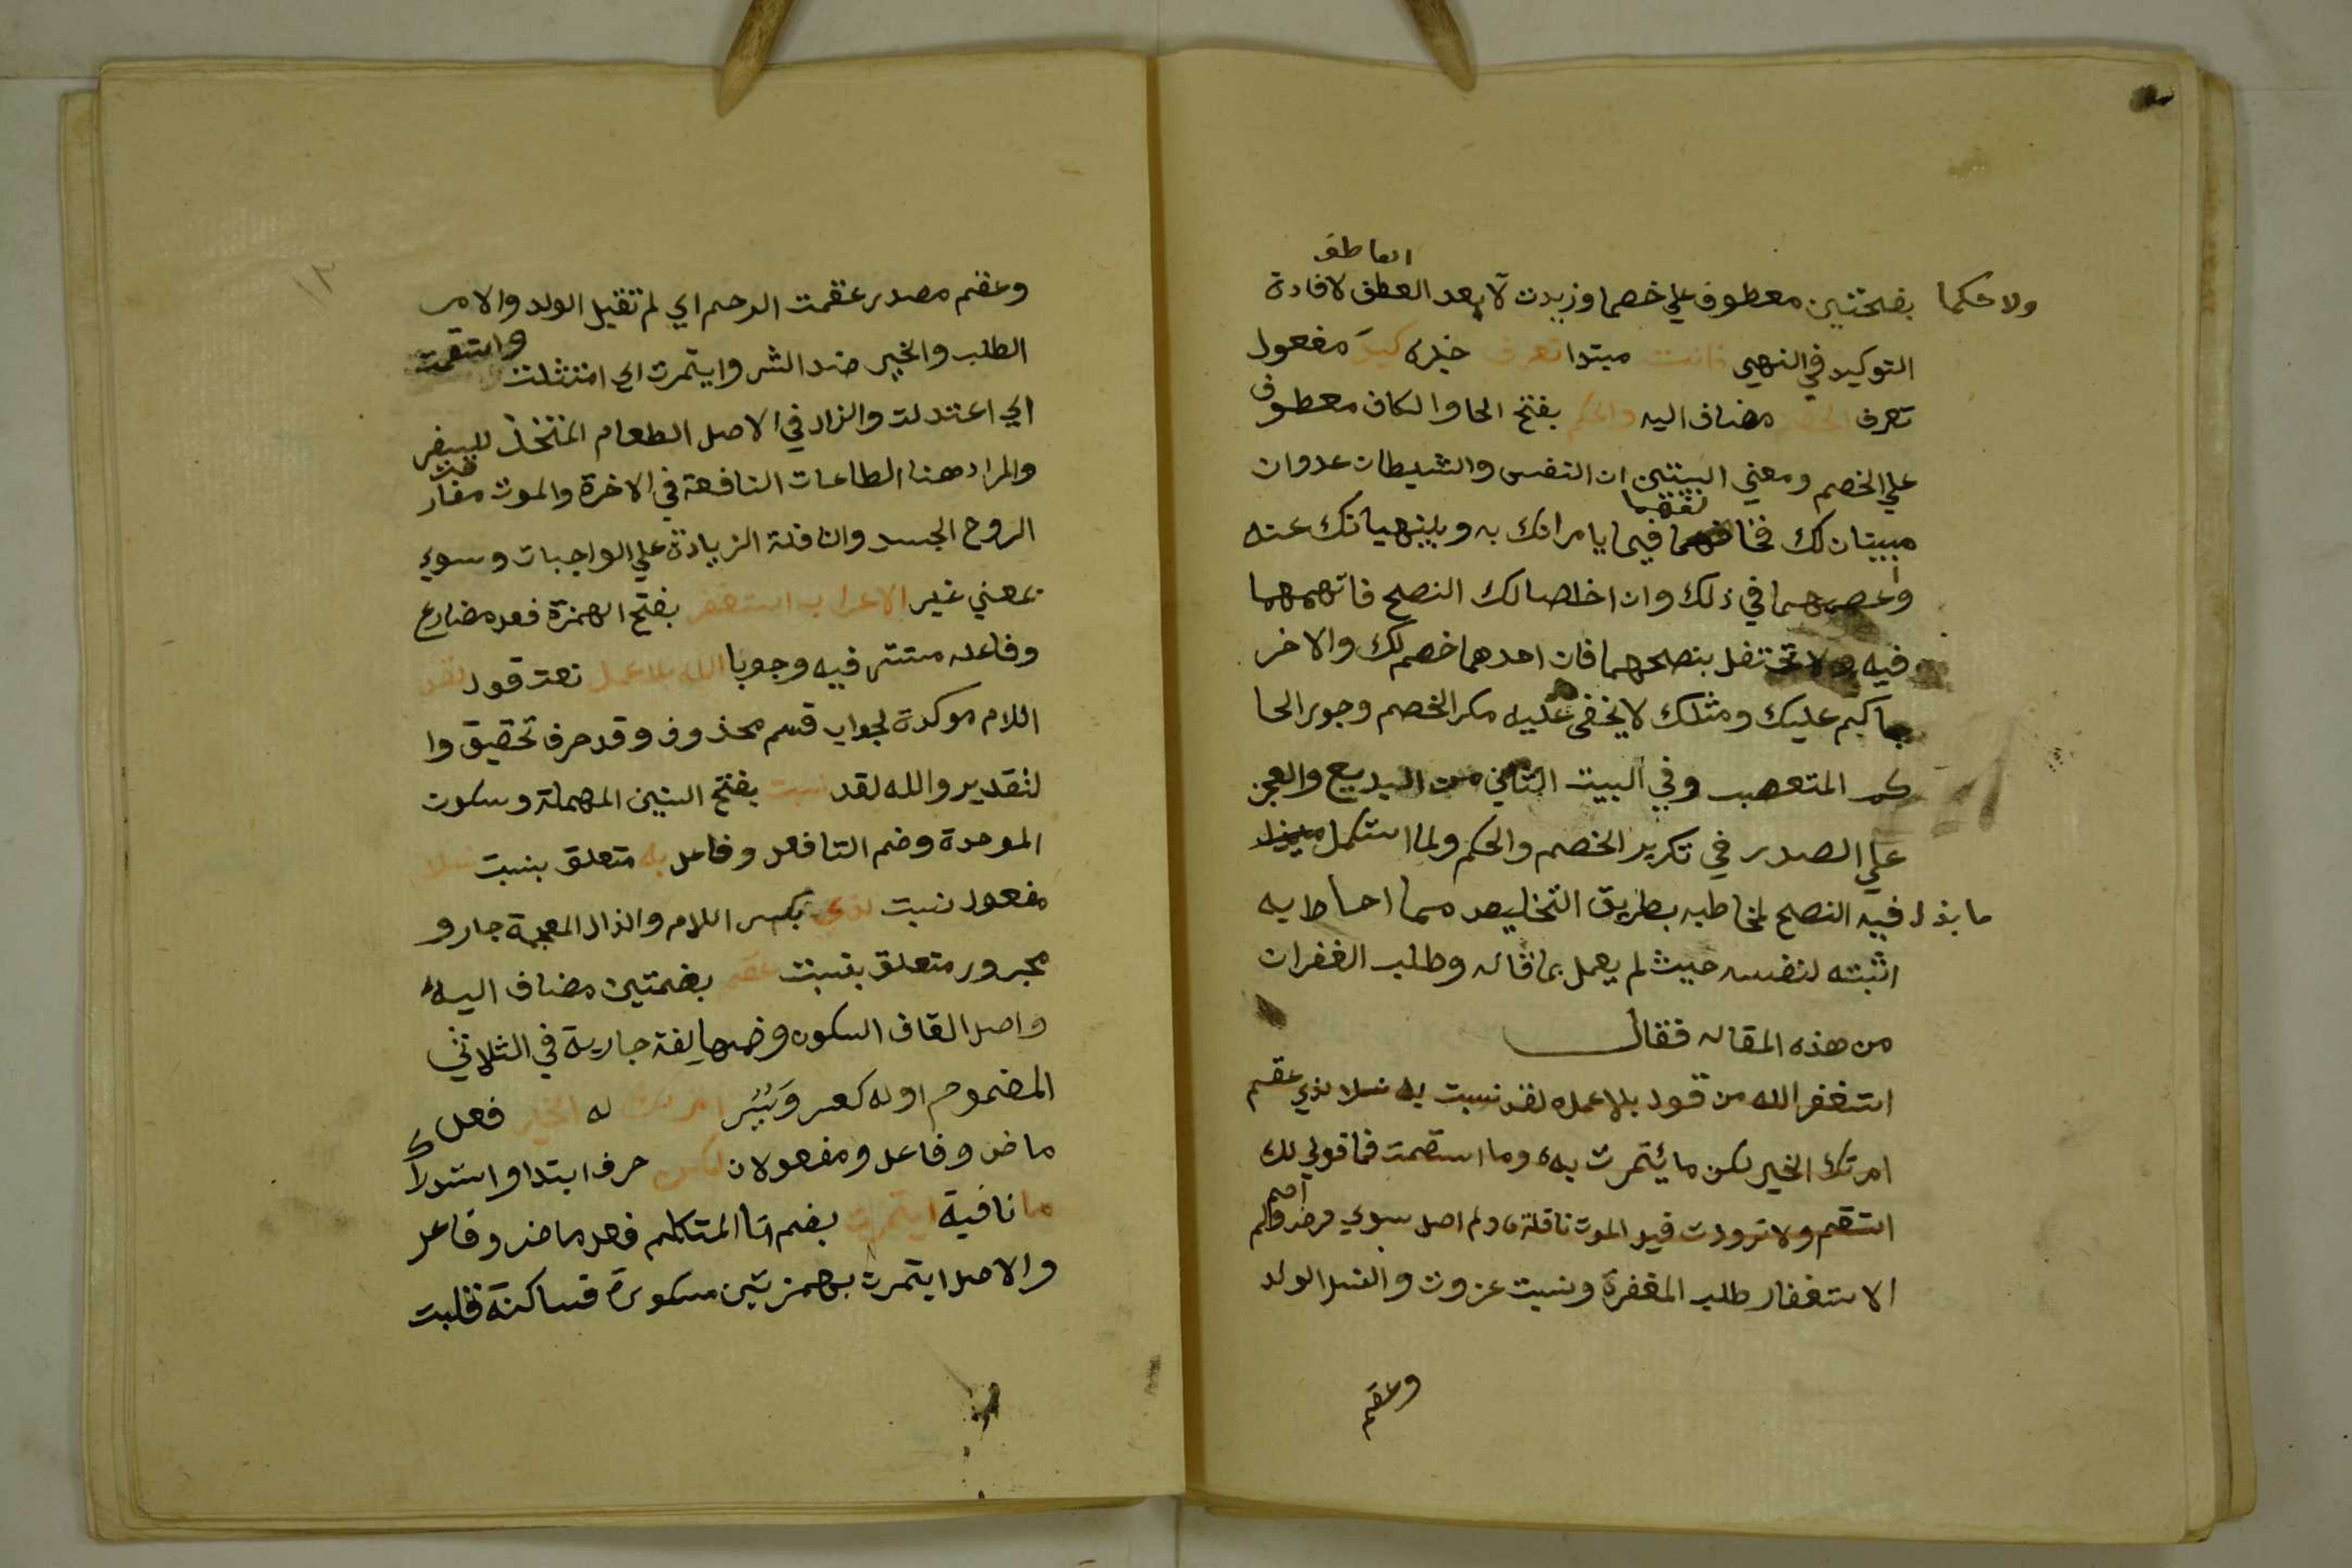 العاطف
ولا حكما بفتحتين معطوف علي خصما وزيدت لا بعد العطف لافادة
التوكيد في النهي فانت مبتدا تعرف خبره كيد مفعول
تعرف الخصم مضاف اليه والحكم بفتح الحا والكاف معطوف
علي الخصم ومعني البيتين ان النفس والشيطان عدوان
مبينان لك فخالفهما فيما يامرانك به وينهيانك عنه
واعصهما في ذلك وان اخلصا لك النصح فاتهمهما
فيه ولا تحتفل بنصحهما فان احدهما خصم لك والاخر
حاكم عليك ومثلك لا يخفى عليه مكر الخصم وجور الحا
كم المتعصب وفي البيت الثاني من البديع والعجز
علي الصدر في تكرير الخصم والحكم ولما استكمل
ما بذل فيه النصح لمخاطبه بطريق التخليص مما احاط به
اثبته لنفسه حيث لم يعمل بما قاله وطلب الغفران
من هذه المقاله فقال
استغفر الله من قول بلا عمل لقد نسبت به نسلا لذي عقم
امرتك الخير لكن ما يتمرت به وما استقمت فما قولي لك
استقم ولا تزودت قبل الموت نافلة ولم اصل سوي فرض ولم اصم
الاستغفار طلب المغفرة ونسبت عزوت والنسل الولد
وعقم
١٣
وعقم مصدر عقمت الرحم اي لم تقبل الولد والامر
الطلب والخير ضد الشر وايتمرت اي امتثلت واستقمت
اي اعتدلت والزاد في الاصل الطعام المتخذ للسفر
والمراد هنا الطاعات النافعة في الاخرة والموت مفارقت
الروح الجسد والنافلة الزيادة علي الواجبات وسوي
بمعني غير الاعراب استغفر بفتح الهمزة فعل مضارع
وفاعله مستتر فيه وجوبا الله بلا عمل نعت قول لقد
اللام موكدة لجواب قسم محذوف وقد حرف تحقيق وا
لتقدير والله لقد نسبت بفتح السين المهملة وسكون
الموحدة وضم التا فعل وفاعل به متعلق بنسبت نسلا
مفعول نسبت لذي بكسر اللام والذال المعجمة جار و
مجرور متعلق بنسبت عقم بضمتين مضاف اليه
واصل القاف السكون وضمها لغة جارية في الثلاثي
المضموم اوله كعسر ويسر امرتك له الخير فعل
ماض وفاعل ومفعولان لكن حرف ابتدا واستدراك
ما نافية ايتمرت بضم تا المتكلم فعل ماض وفاعل
والاصل ايتمرت بهمزتين مكسورة فساكنة فقلبت